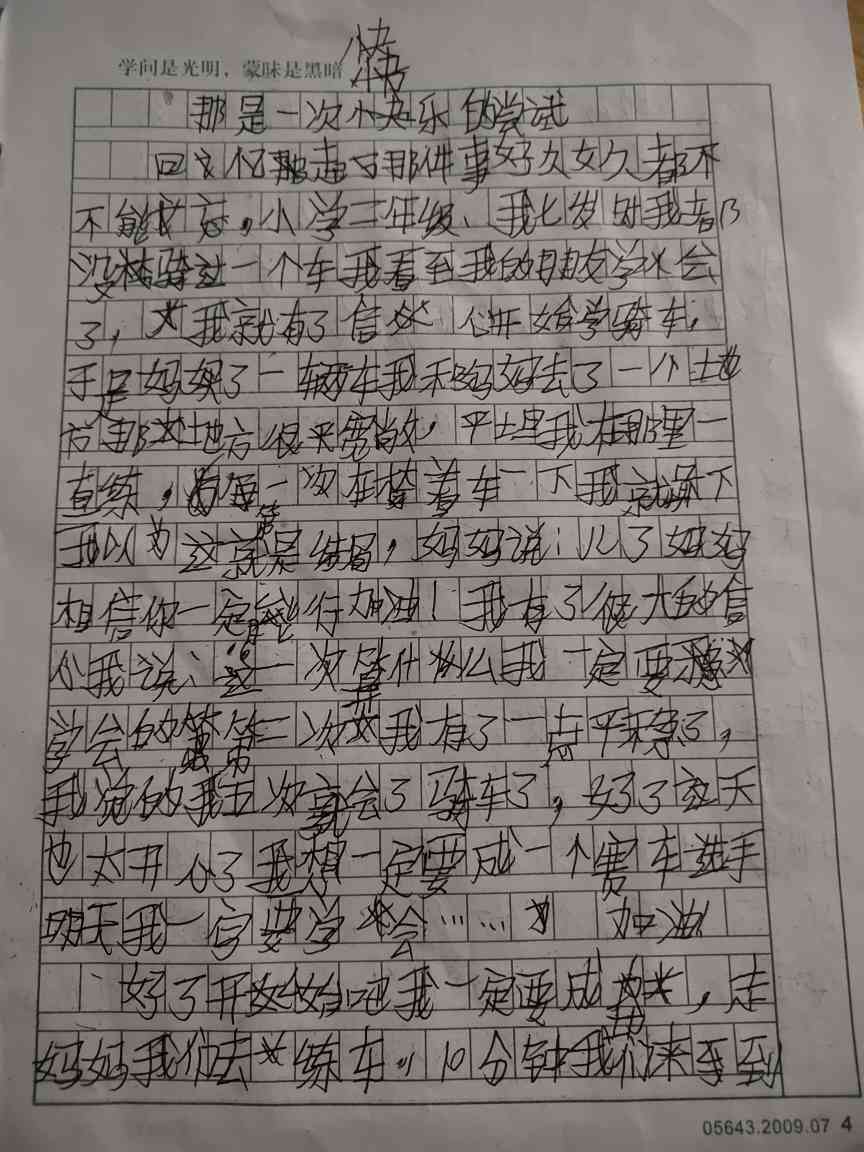 学问是光明，蒙昧是黑暗
快
那是一次快乐的尝试
回忆那件事好久好久都不
不能忘，小学二年级、我七岁时我都
没骑过一个车我看至我的朋友学会
了，我就有了信心开始学骑车，
于是妈买了一辆车我和妈妈去了一个地
方那地方很宽 平 我在那里一
直练，每一次在 着车一下我就 下
我以为这就是结局，妈妈说：儿子妈妈
相信你一定能行加油！我有了很大的信
心我说：这一次算什么我一定要
学会的第二次我有了一点平稳了，
我 的我五次就会了骑车了，好了这天
也太开心了我想一定要成一个赛车选手
明天我一定要学会…… 加油！
好了开始吧我一定要成 ，走
妈妈我们去练车。10分钟我们来到
05643.2009.07 4